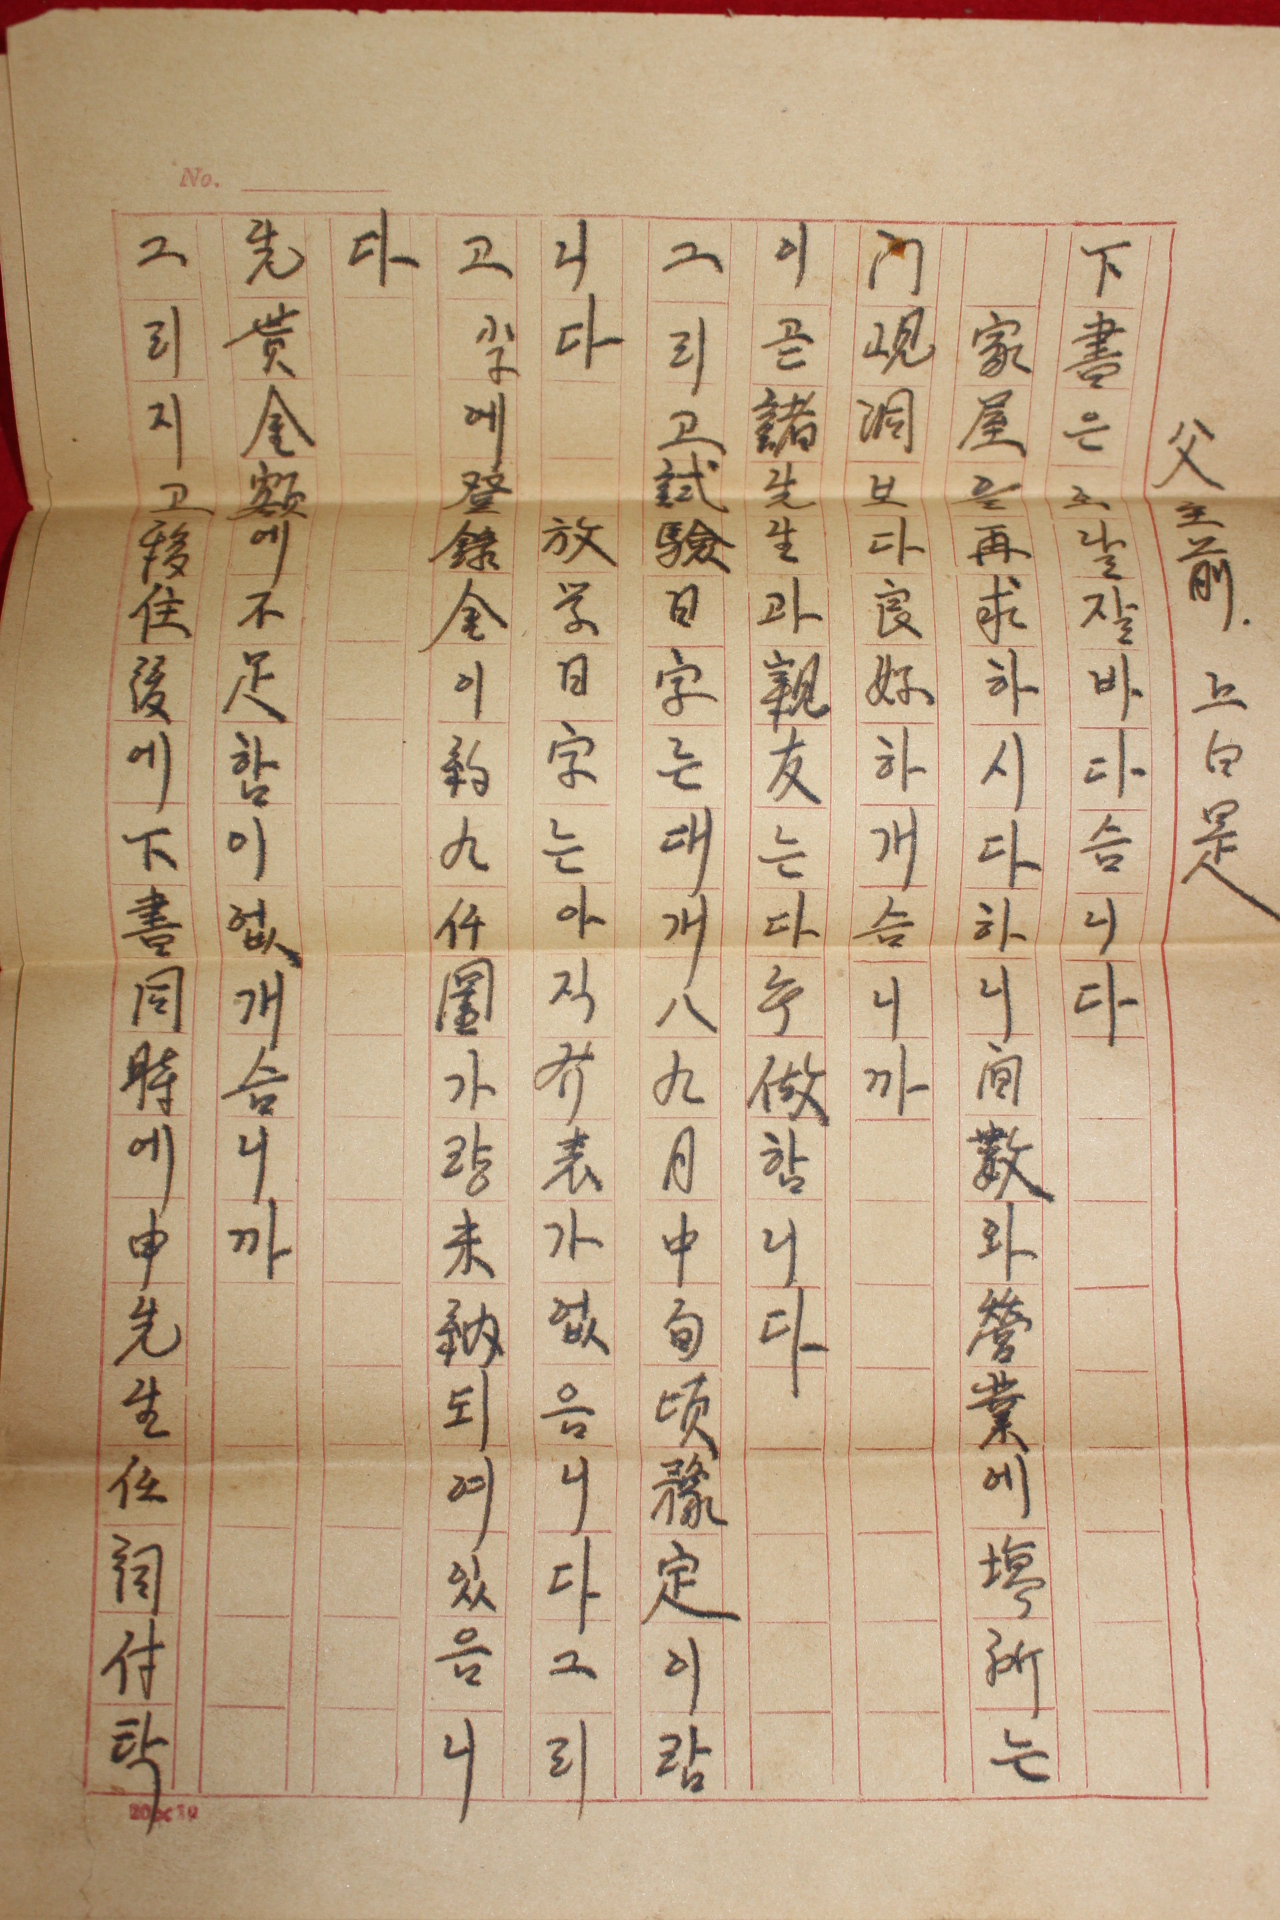 父主前. 上白是
下書은 오날 잘 바다슴니다
家屋을 再求하시다하니 间數와 營業에 場所는
门峴洞보다 良好하개슴니까
이곧 諸先生과 親友는 다 做함니다
그리고 試驗日字는 대개 八九月 中旬頃 豫定이람
니다 放学日字는 아직 发表가 없음니다 그리
고 学에 登錄金이 約 九仟圜가량 未納되여 있음니
다
先貰金額에 不足함이 없개슴니까
그리지고 移住後에 下書同時에 申先生任 付탁
No.